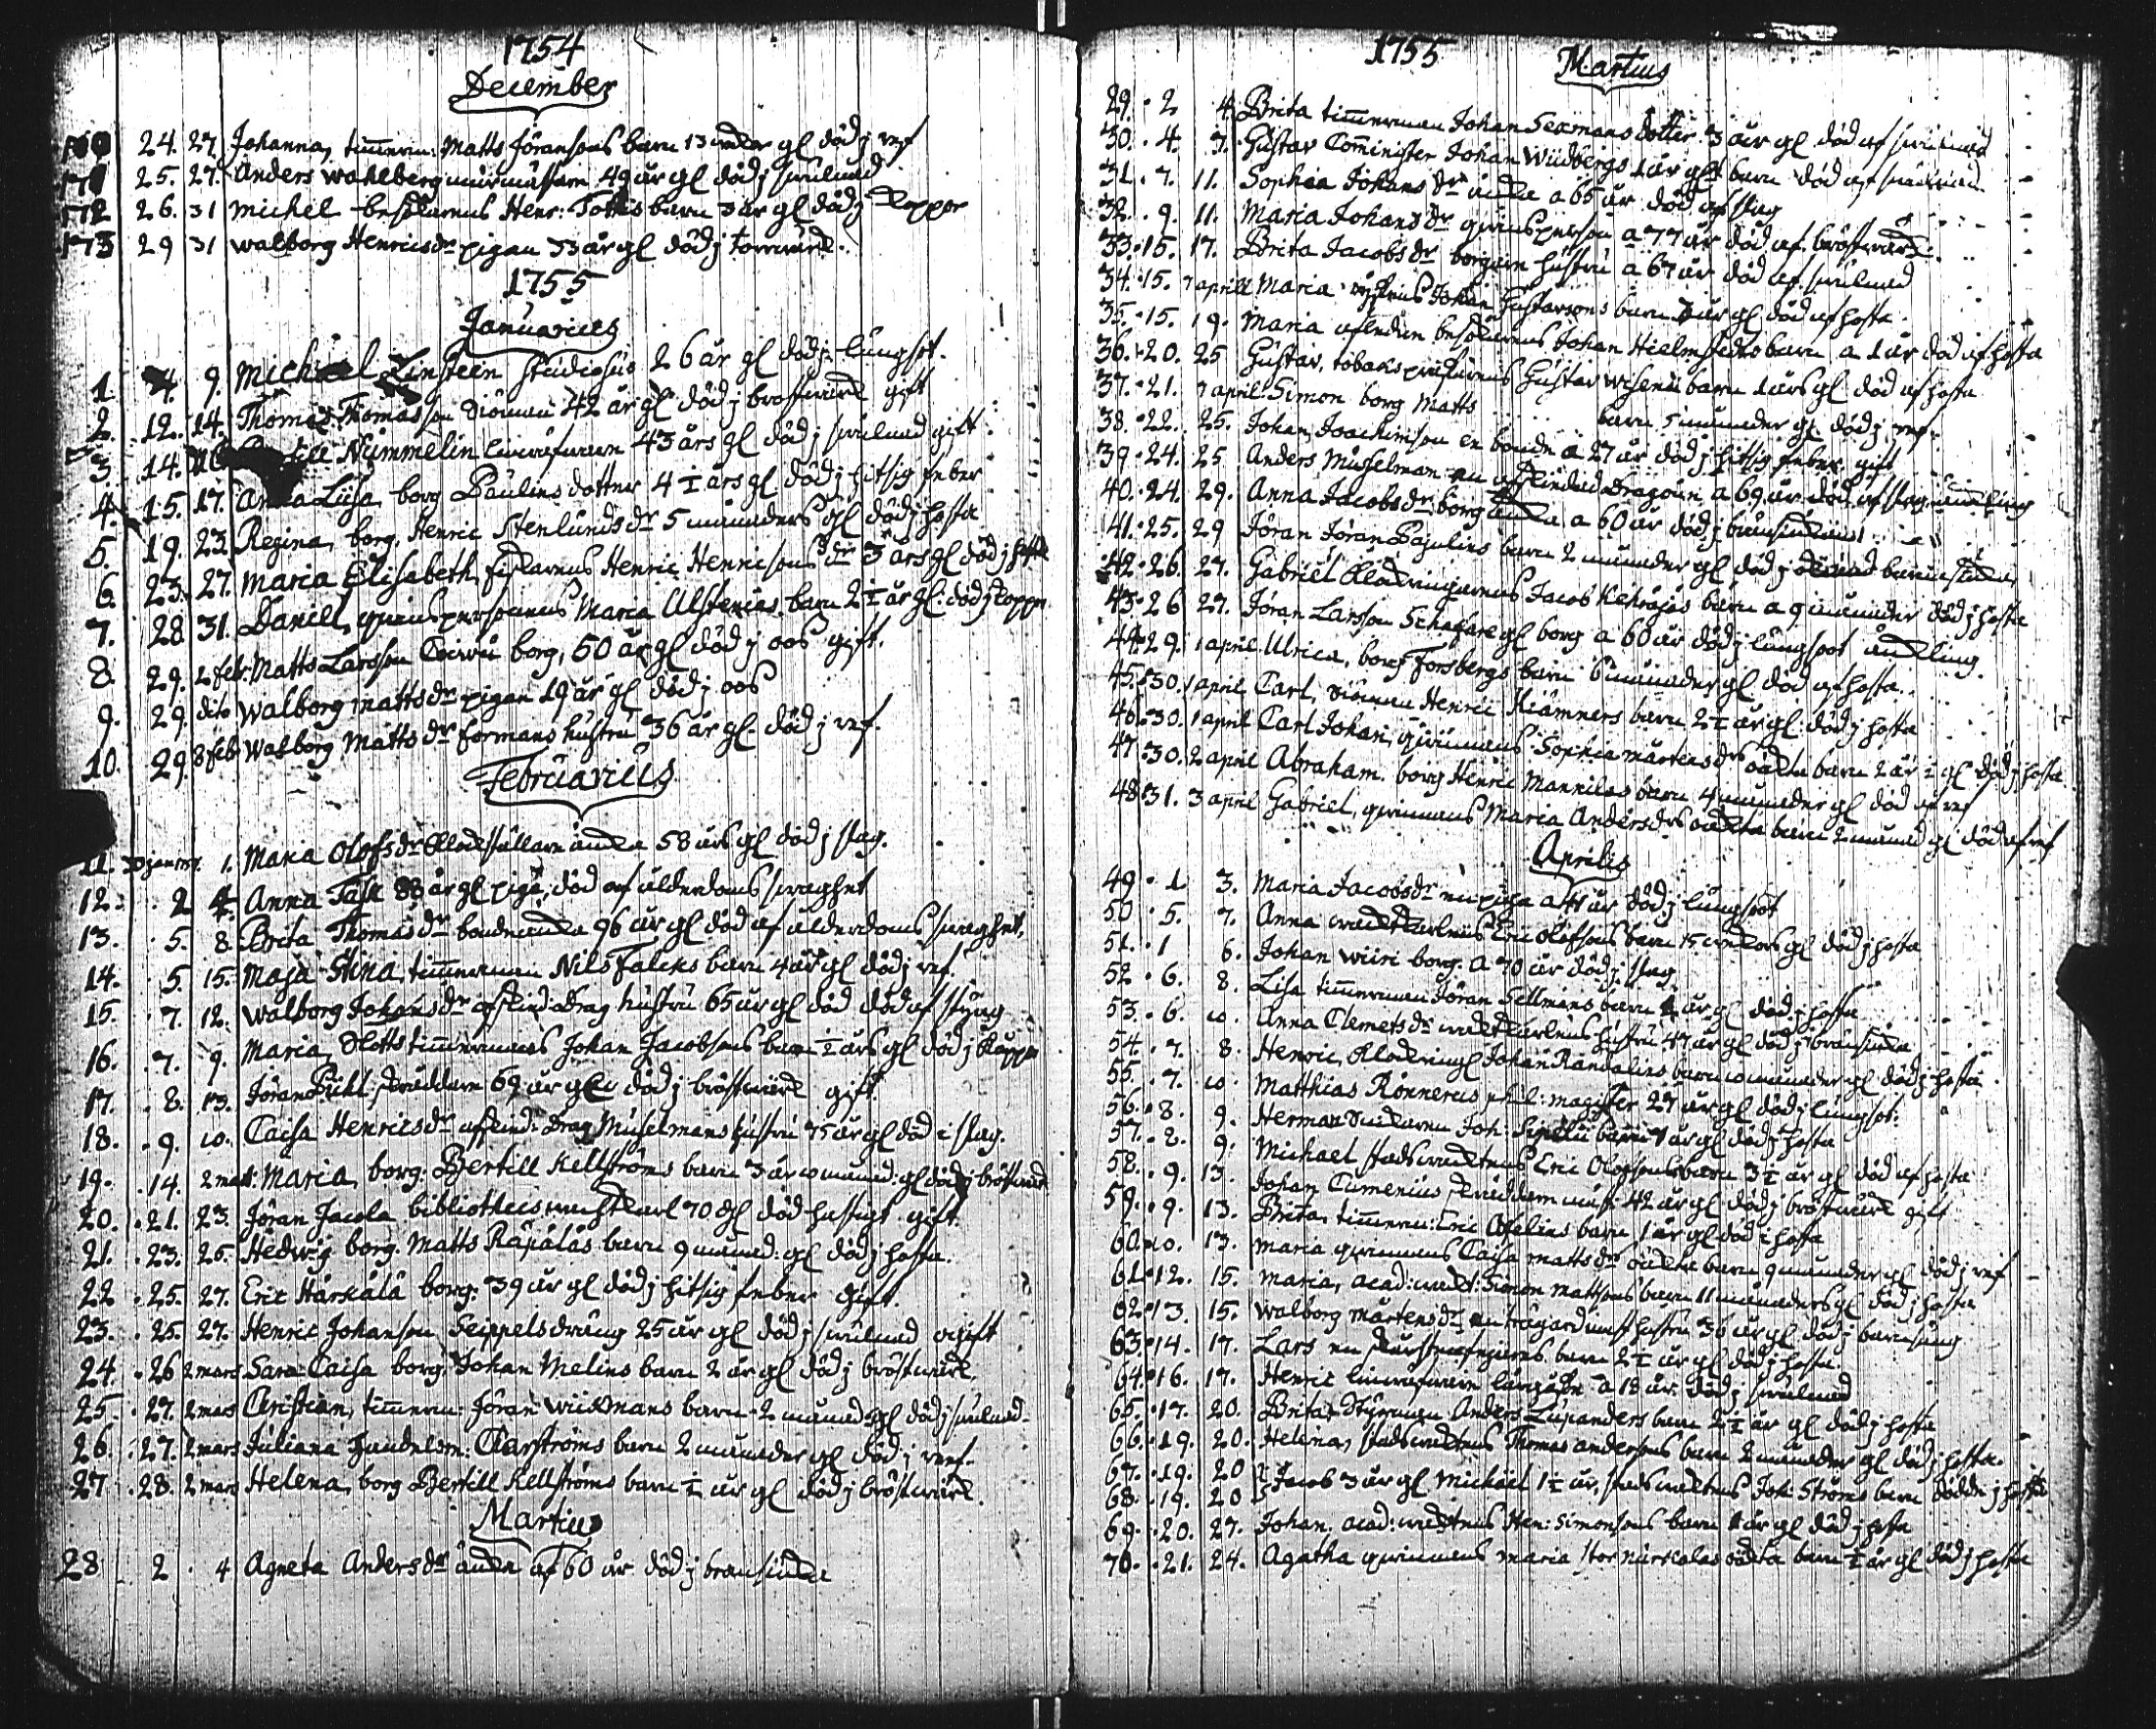 1754
December
170 24. 27 Johanna, timmerm: Matts Jöransons barn 13 wekor gl död j ref
171 25. 27. Anders Wahlberg murmästare 49 år gl död j swulnad
172 26. 31 Michel besökarens Henr: barn 3 år gl död j koppor
173 29 31 Walborg Henricsdr pigan 33 år gl död j torrwärk.
1755
Januarius
1. 4. 9. Michael Linsteen studiosus 26 år gl död j lungsot.
2. 12. 14. Thomas Thomasson siöman 42 år gl död j bröstwärk gift
3 14. Nummelin linwäfwaren 43 års gl död j swulnad gift
4. 15. 17. Anna Lisa, borg Paulins dotter 4½ års gl död j hitsig feber
5. 19. 23. Regina, borg. Henric Stenlunds dr 5 månaders gl död j hosta
6. 23. 27. Maria Elisabeth, fiskarens Henric Henricsons dr 3 års gl död j hosta
7. 28 31. Daniel, qwinspersonens Maria Ulstenias barn 2½ år gl: död j koppor
8. 29. 2 febr. Matts Larsson Coiwu borg, 50 år gl död j oos gift.
9. 29. dito Walborg Mattsdr pigan 19 år gl död j oos
10. 29. 8 feb Walborg Mattsdr formans hustru 36 år gl. död j ref.
Februarius
11. 30 januar. 1. Maria Olofsdr Klockställare änka 58 års gl död j slag.
12. 2 4. Anna Task 88 år gl piga, död af ålderdoms swaghet
13. 5. 8. Brita Thomasdr bondeenka 96 år gl död af ålderdoms swaghet.
14. 5 15. Maja Stina, timmerman Nils Falcks barn 4 år gl död j ref.
15. 7. 12. Walborg Johansdr afskied: Drag hustru 65 år gl död död af styng
16. 7. 9. Maria, Slotts timmermans Johan Jacobsons barn ½ års gl död j koppor
17. 8. 13. Jöran Pihl, skräddare 69 år gl död j bröstwärk gift.
18. 9. 10. Caisa Henricsdr afskied: Drag Muselmans hustru 75 år gl död i slag.
19. 14. 2 mart: Maria, borg: Bertill Kellströms barn 3 år 10 månad: gl död j bröstwärk
20. 21. 23. Jöran Jacola bibliothecs wachtkarl 70 gl död hastigt. gift.
21. 23. 25. Hedwig borg. Matts Räpäläs barn 9 månad: gl död j hosta.
22 25. 27. Eric Härkälä borg. 39 år gl död j hitsig feber gift.
23. 25. 27. Henric Johanson Seippels dräng 25 år gl död j swulnad ogift
24. 26 2 mars Sara Caisa borg. Johan Melins barn 2 år gl död j bröstwärk.
25. 27. 2 mars Christian, timmerm: Jöran Wiikmans barn 2 månad: gl död j swulnad.
26. 27. 2 mars Juliana Handelsm: Clarströms barn 2 månader gl död j reef.
27 28. 2 mars Helena, borg Bertill Kellströms barn ½ år gl död j bröstwärk.
Martius
28 2 4 Agneta Andersdr änka af 60 år död j bränsiuka
1755 Martius
29. 2 4. Brita timmerman Johan Sexmans dotter 3 år gl död af swulnad
30. 4. 7. Gustav Comminister Johan Widbergs 1 år glt barn död af swulnad.
31. 7. 11. Sophia Johansdr änka a 65 år död af slag
32. 9. 11. Maria Johansdr qwinsperson a 77 år död af bröstwärk.
33. 15. 17. Brita Jacobsdr borgaren hustru a 67 år död af swulnad
34. 15. 7 aprill Maria Johan Gustavsons barn 3 år gl död af hosta.
35. 15. 19. Maria aflidne besökarens Johan Hielmstedts barn, a 1 år död af hosta
36. 20. 25 Gustav, tobaks Gustav Wisenii barn 1 års gl död af hosta
37. 21. 7 april Simon borg Matts barn 5 månader gl död j ref.
38. 22. 25. Johan Joachimson en bonde a 27 år död j hitsig feber gift
39. 24. 25 Anders Muselman en afskiedad Dragoun a 69 år död af slag änkling
40. 24. 29. Anna Jacobsdr borg änka a 60 år död j bränsiukan
41. 25. 29 Jöran Jöran Pajulins barn 2 månader gl död j barnsiuka
42. 26. 27. Gabriel Klockringarens Jacob Kekojas barn a 9 månader död j hosta
43. 26 27. Jöran Larsson Schafare gl borg a 60 år död j lungsoot änkling.
44. 29. 1 april Ulrica, borg Forsbergs barn 6 månader gl död af hosta.
45. 30. 1 april Carl, siöman Henric Kiämners barn 2½ år gl. död j hosta
46. 30. 1 april Carl Johan, qwinnans Sophia Mårtensdrs oäkta barn 2 år ½ gl död j hosta
47. 30. 2 april Abraham. borg Henric Mannilas barn 4 månader gl död af ref
48. 31. 3 april Gabriel, qwinnans Maria Andersdrs oäkta barn 2 månad gl död af ref
Aprilis
49. 1 3. Maria Jacobsdr en piga a 44 år död j lungsoot
50. 5. 7. Anna wacktkarlens Eric Olofsons barn 15 wekors gl död j hosta
51. 1 6. Johan Wiiri borg. a 70 år död j. slag
52. 6. 8. Lisa timmerman Jöran Sellmans barn 4 år gl död j hosta
53. 6. 10. Anna Clemetsdr wacktkarlens hustru 47 år gl död j bränsiuka
54. 7. 8. Henric, Klockringl Johan Randalins barn 10 månader gl död j hosta.
55. 7. 10. Matthias Rönnerus phil: magister 27 år gl död j lungsot.
56. 8. 9. Herman Snickaren Joh: Sinelii barn 1 år gl död j hosta
57. 8. 9. Michael stadswacktens Eric Olofsons barn 3½ år gl död af hosta
58. 9. 13. Johan Cumenius skräddarmäst: 42 år gl död j bröstwärk gift
59. 9. 13. Brita, timmerm: Eric Ofelins barn 1 år gl död i hosta
60. 10. 13. Maria qwinnans Caisa Mattsdr oäkta barn 9 månader gl död j ref
61. 12. 15. Maria, acad: wackt: Simon Mattsons barn 11 månaders gl död j hosta
62. 13. 15. Walborg Mårtensdr en trägårdmäst hustru 36 år gl död j barnsäng
63. 14. 17. Lars en skorstensfejares barn 2½ år gl död j hosta.
64. 16. 17. Henric linwäfwaren lärgåsse a 18 år död j swulnad
65. 17. 20. Brita, Styrman Anders Lupanders barn 2½ år gl död j hosta
66. 19. 20. Helena, stadswacktens Thomas Andersons barn 2 månader gl död j hosta.
67. 19. 20 Jacob 3 år gl Michäel 1½ år, stadswacktens Joh: Ströms barn dödde j hosta
68. 19. 20
69. 20. 27. Johan. acad: wacktens Hen: Simonsons barn 1 år gl död j hosta
70. 21. 24. Agatha qwinnans Maria Stor Nurkalas oäkta barn ½ år gl död j hosta